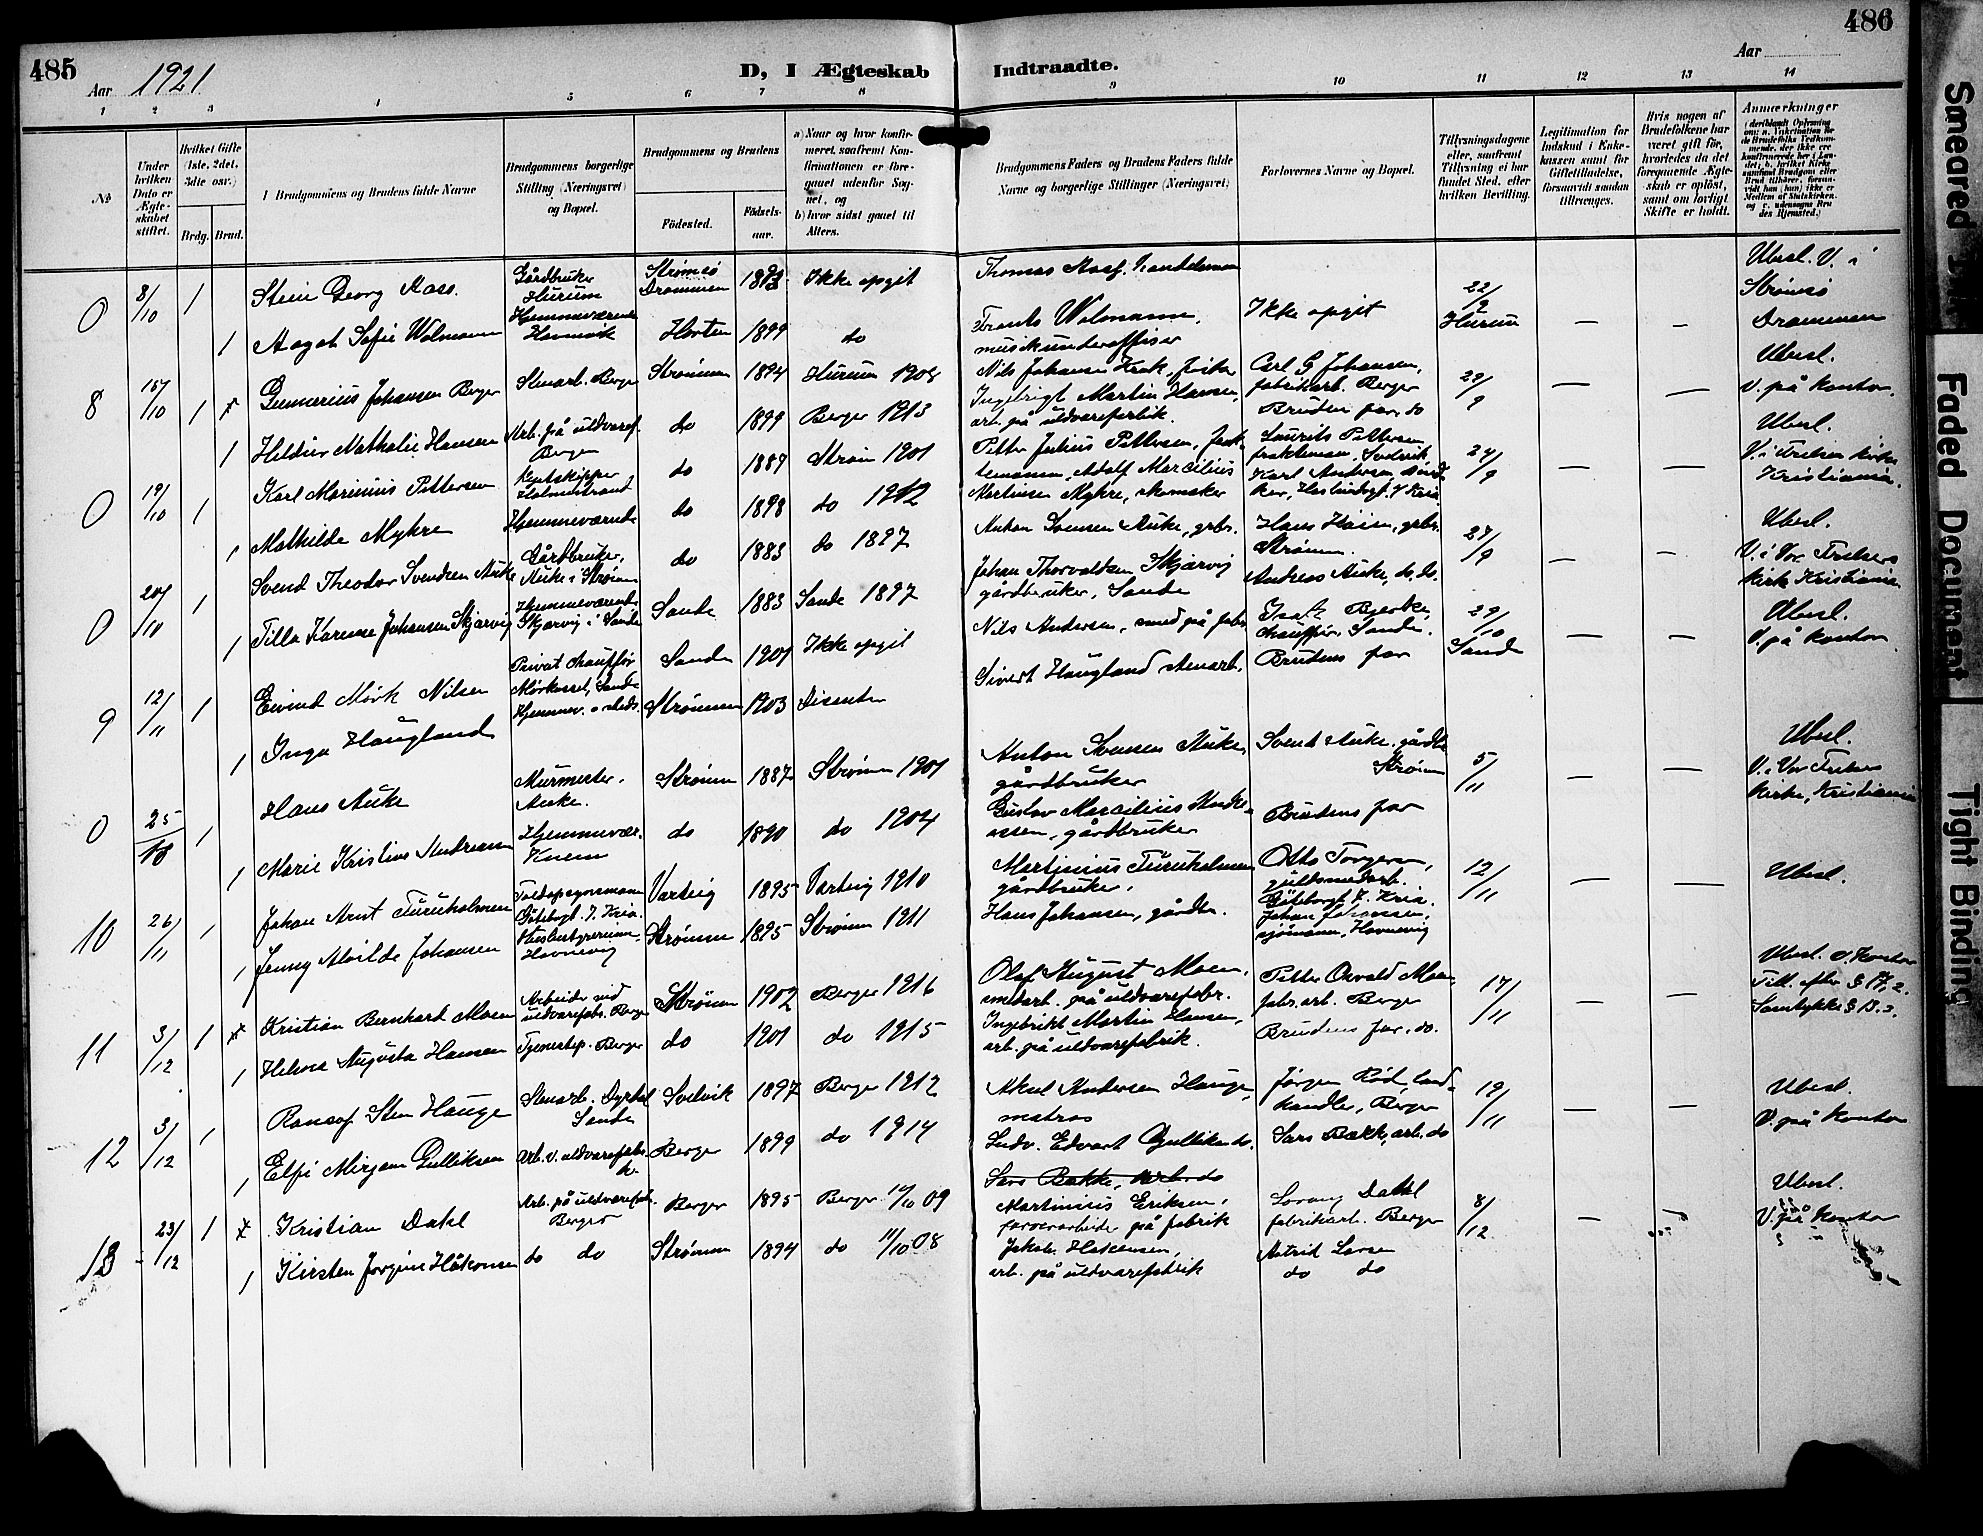 485
Aar 1921.
D, I Ægteskab Indtraadte.
486
Aar
1 2 3 4 5 6 7 8 9 10 11 12 13 14
No
Under hvilken Dato er Ægteskabet stiftet.
Hvilket Gifte (1ste, 2det, 3die osv.)
Brdg. Brud.
Brudgommens og Brudens fulde Navne
Brudgommens borgerlige Stilling (Næringsvei) og Bopæl.
Brudgommens og Brudens
Fødested.
Fødselsaar.
a) Naar og hvor konfirmeret, saafremt Konfirmationen er foregaaet udenfor Sognet, og
b) hvor sidst gaaet til Alters.
Brudgommens Faders og Brudens Faders fulde Navne og borgerlige Stillinger (Næringsvei)
Forlovernes Navne og Bopæl.
Tillysningsdagene eller, saafremt Tillysning ei har fundet Sted, efter hvilken Bevilling.
Legitimation for Indskud i Enkekassen samt for Giftetilladelse, forsaavidt saadan tiltrænges.
Hvis nogen af Brudefolkene har været gift før, hvorledes da det foregaaende Ægteskab er opløst, samt om lovligt Skifte er holdt.
Anmærkninger
0 8/10 1 Stein Georg Aass. Gårdbruker Hurum Strømsø Drammen Ikke opgit Thomas Aass, handelsmann 22/9 Hurum Ubesl. V. i Strømsø Drammen
1 Aagot Sofie Wolmann Hjemmeværende Havnvik Horten 1899 do Frants Wolmann, musikunderoffiser Ikke opgit — —
8 15/10 1 Gunnerius Johansen Berger Stenarb. Berger Strømm 1894 Hurum 1908 Nils Johansen Krok, fisker Carl G Johansen, fabrikarb. Berger 29/9 — — Ubesl. V. på kontor.
1 Heldur Nathalie Hansen Arb. på uldvaref. Berger do 1899 Berger 1913 Ingebrigt Martin Hansen, arb. på uldvarefabrik. Brudens far, do
0 19/10 1 Karl Marinius Pettersen Holmestrand do 1887 Strøm 1901 Petter Julius Pettersen, Laurits Pettersen fraktemann, Svelvik 24/9 — — Ubesl. V. i Frelsers kirke Kristiania.
1 Mathilde Myhre Hjemmeværende do 1898 do 1912 Adolf Marcilius Martinsen Myhre, skomaker Karl Andersen,
0 20/10 1 Svend Theodor Svendsen Auke Gårdbruker, Auke i Strømm do 1883 do 1897 Anton Svensen Auke, grbr. Hans Høien, grbr. Strømm. 27/9 — — Ubesl. V. i Vor Frelsers kirk Kristiania
1 Tilla Karense Johansen Skjærvig Hjemmeværende Skjærvig i Sande Sande 1883 Sande 1897 Johan Thorvaldsen Skjærvig gårdbruker, Sande Andreas Auke, do. do.
9 12/11 1 Eivind Mørk Nilsen Privat chauffør Sande Sande 1901 Ikke opgit Nils Andersen, smed på fabr Isak Bjerke, chauffør, Sande. 29/10 Sande — — Ubesl. V. på kontor
1 Inga Haugland Strømm 1903 Disenter Sivert Haugland stenarb. Brudens far
0 25/10 1 Hans Auke Murmester. Auke. Strømm 1887 Strømm 1901 Anton Svensen Auke, gårdbruker Svend Auke, gårdbr Strømm 5/11 — — Ubesl. V. i Vor Frelsers kirke, Kristiania
1 Marie Kristine Andreasen do 1890 do 1904 Gustav Marcilius Andreassen, gårdbruker Brudens far
10 26/11 1 Johan Arnt Furuholmen Tollopsynsmann Gøteborgt. 7. Kria. Varteig 1895 Varteig 1910 Martinius Furuholmen gårdbruker, Otto Torgersen, gullsmedarb. Gøteborgt 7. Kria. 12/11 — — Ubesl.
1 Jenny Alvilde Johansen Husbestyrerinne, Havnevig Strømm 1895 Strømm 1911 Hans Johansen, gårdbr. Johan Johansen, sjømann, Havnevig
11 3/12 1 Kristian Bernhard Moen Arbeider ved uldvarefabr. Berger Strømm 1902 Berger 1916 Olaf August Moen, smedarb. på uldvarefabr. Petter Osvald Moen, fabr. arb. Berger 17/11 — — Ubesl. V. Kontor Till. efter § 17, 2. Samtykke § 13.
1 Helma Augusta Hansen Tjenestep. Berger do 1901 do 1915 Ingebrikt Martin Hansen, arb. på uldvarefabrik. Brudens far. do.
12 3/12 1 Sten Hauge Stenarb. Sande Svelvik 1897 Berger 1912 Aksel Andersen Hauge, matros Jørgen Rød, landhandler, Berger 19/11 — — Ubesl. V. på kontor
1 Elfi Mirjam Gulliksen Arb. v. uldvarefabr. do Berger 1899 do 1914 Ludv. Edvart Gulliksen do. Lars Bakke, arb. do
Lars Bakke, Arb. do
13 23/12 1 Kristian Dahl Arb. på uldvarefab. Berger Berger 1895 Berger 10/10 09 Martinius Eriksen, farverarbeider på fabrik Dahl fabrikarb. Berger 8/12 — Ubesl. V. på kontor
1 Kirsten Jorgine Håkonsen do do Strømm 1894 do 11/10 08 Jakob Hakensen, arb. på uldvarefabrik Astrid Larsen do do
Smeared Ink
Faded Document
Tight Binding